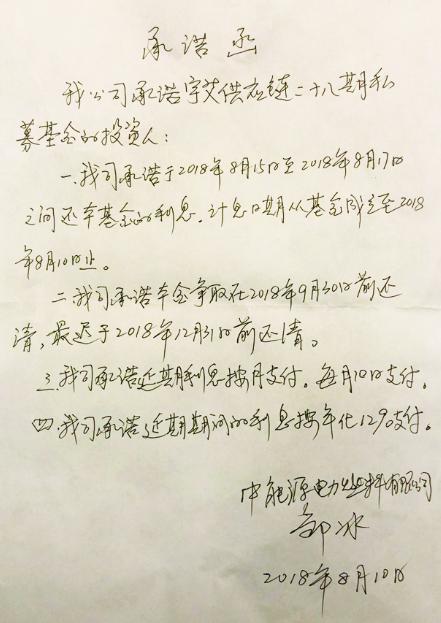 承诺函
我公司承诺宇艾供应链二十八期私
募基金的投资人：
一.我司承诺于2018年8月15日至2018年8月17日
之间还本基金的利息，计息日期从基金成立至2018
年8月10日止。
二.我司承诺本金争取在2018年9月30日前还
清，最迟于2018年12月31日前还清。
三.我司承诺延期利息按月支付，每月10日支付。
四.我司承诺延期期间的利息按年化12%支付。
中能源电力燃料有限公司
邹冰
2018年8月10日